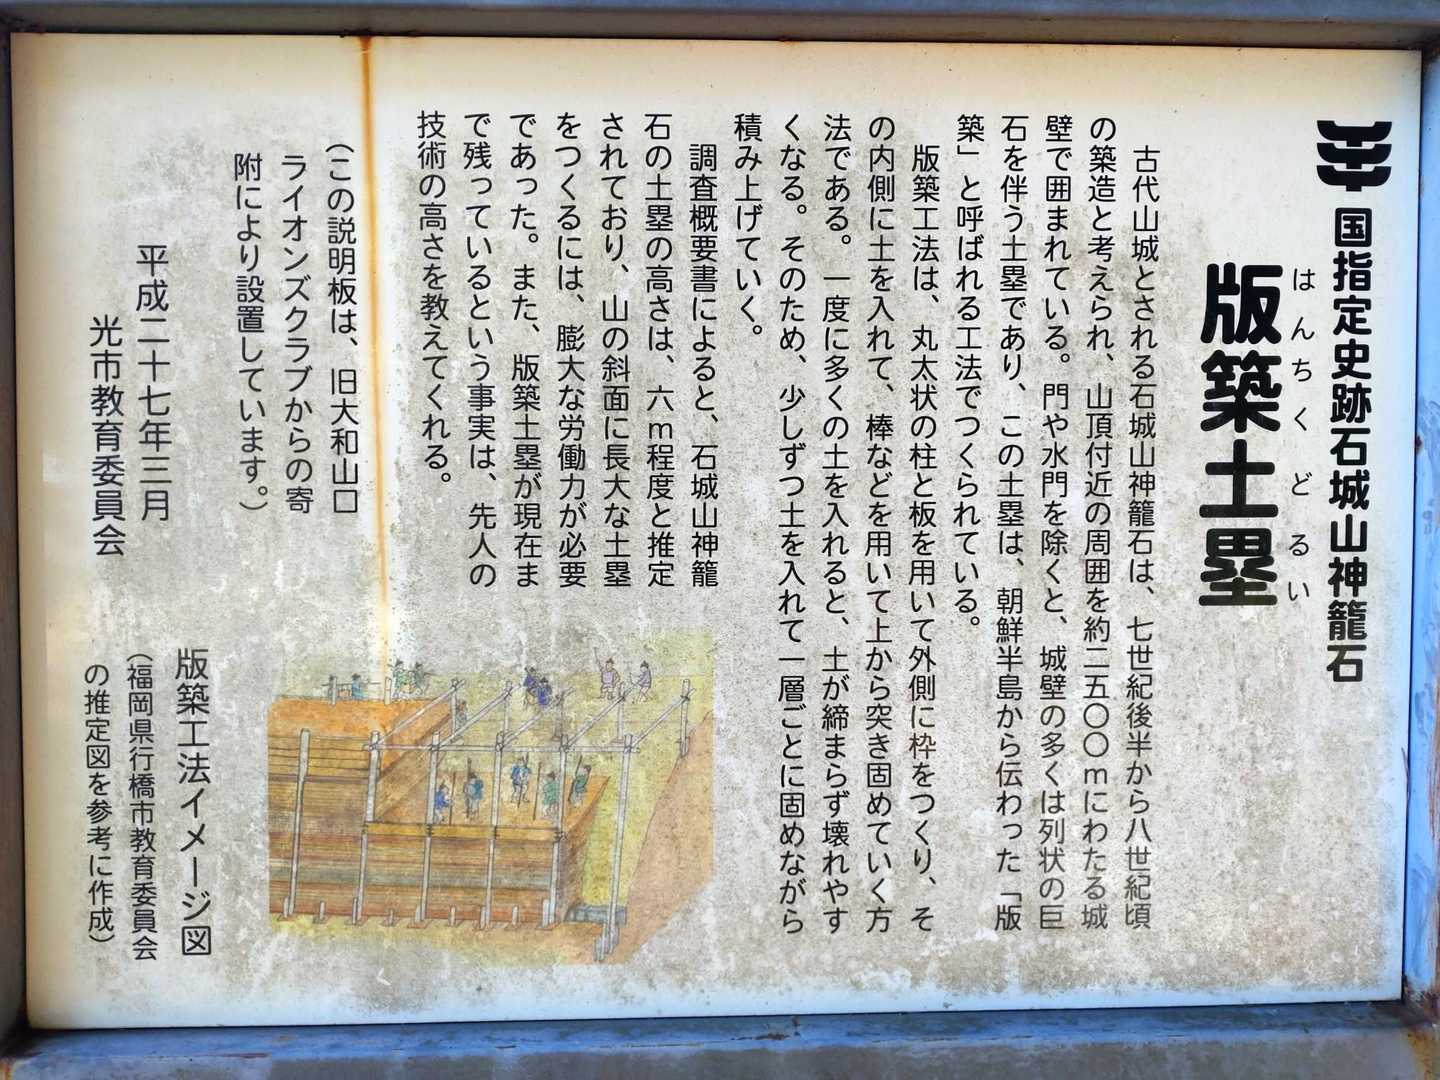 国指定史跡石城山神籠石
はんちくどるい
版築土塁
古代山城とされる石城山神籠石は、七世紀後半から八世紀頃
の築造と考えられ、山頂付近の周囲を約二五〇〇ｍにわたる城
壁で囲まれている。門や水門を除くと、城壁の多くは列状の巨
石を伴う土塁であり、この土塁は、朝鮮半島から伝わった「版
築」と呼ばれる工法でつくられている。
版築工法は、丸太状の柱と板を用いて外側に枠をつくり、そ
の内側に土を入れて、棒などを用いて上から突き固めていく方
法である。一度に多くの土を入れると、土が締まらず壊れやす
くなる。そのため、少しずつ土を入れて一層ごとに固めながら
積み上げていく。
調査概要書によると、石城山神籠
石の土塁の高さは、六ｍ程度と推定
されており、山の斜面に長大な土塁
をつくるには、膨大な労働力が必要
であった。また、版築土塁が現在ま
で残っているという事実は、先人の
技術の高さを教えてくれる。
（この説明板は、旧大和山口
ライオンズクラブからの寄
附により設置しています。）
平成二十七年三月
光市教育委員会
版築工法イメージ図
（福岡県行橋市教育委員会
の推定図を参考に作成）